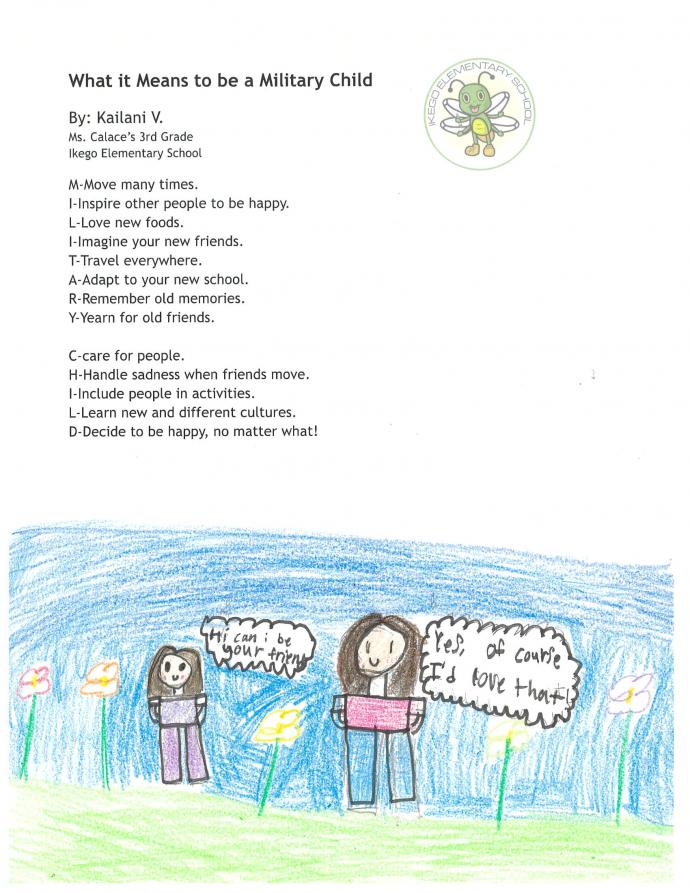 What it Means to be a Military Child
IKEGO ELEMENTARY SCHOOL
By: Kailani V.
Ms. Calace's 3rd Grade
Ikego Elementary School
M-Move many times.
I-Inspire other people to be happy.
L-Love new foods.
I-Imagine your new friends.
T-Travel everywhere.
A-Adapt to your new school.
R-Remember old memories.
Y-Yearn for old friends.
C-care for people.
H-Handle sadness when friends move.
I-Include people in activities.
L-Learn new and different cultures.
D-Decide to be happy, no matter what!
Hi can i be
your friend
Yes, of course
I'd love that!